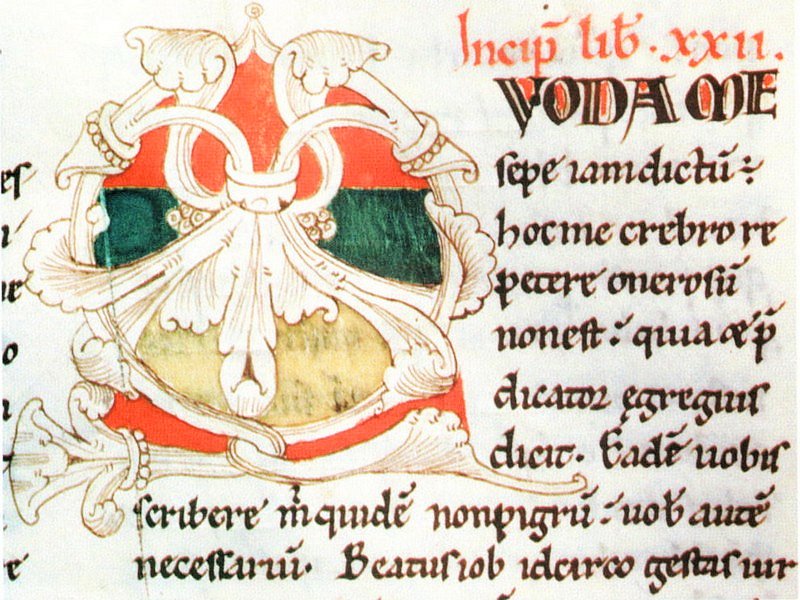 Incip̄ lib̄. xxii.
QVODA ME
sepe iam dictū :
hoc me crebro re
petere onerosū
non est : quia & p̄
dicator ęgregius
dicit. Eadē uobis
scribere m̄ quidē non pigrū : uob̄ autē
necessariū. Beatus iob idcirco gestas uir